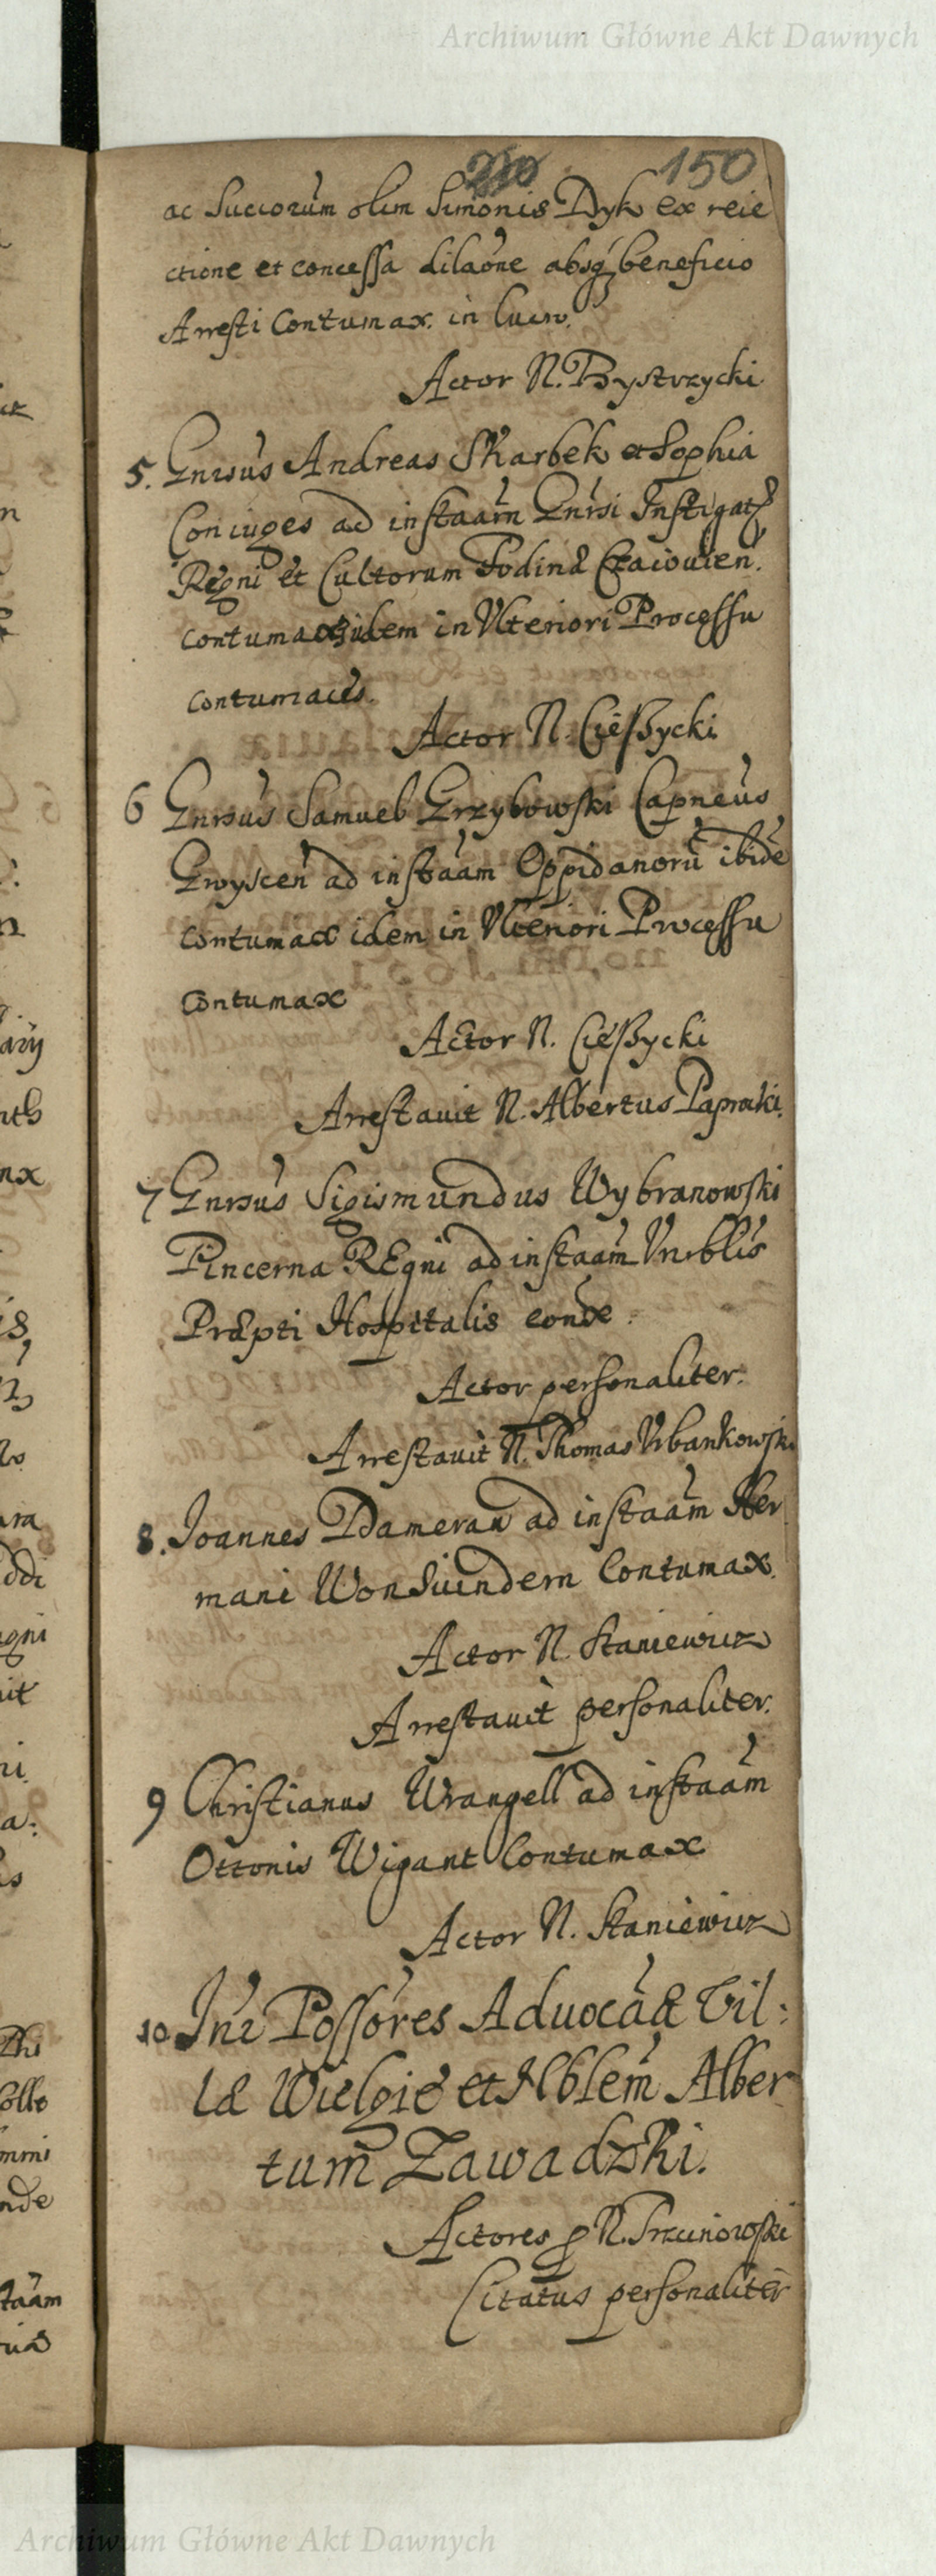 Archiwum Główne Akt Dawnych
150
ac Succorum olim Simonis Dyk ex reie
ctione et concessa dilaõne absq beneficio
Arresti Contumax. in lucro.
Actor N. Bystrzycki
5. Gnrsus Andreas Skarbek et Sophia
Coniuges ad instaam Gnrsi Instigat
Regni et Cultorum Fodinæ Czaiovien.
contumax idem in Vlteriori Processu
contumaces.
Actor N. Cießycki
6 Gnrsus Samuel Grzybowski Capneus
ad instaam Oppidanorũ ibide
contumax idem in Vlteriori Processu
Contumax
Actor N. Cießycki
Arrestavit N. Albertus Paprocki.
7 Gnrsus Sigismundus Wybranowski
Pincerna REgni ad instaam Vnrblis
Præpti Hospitalis eonde.
Actor personaliter.
Arrestavit N. Thomas Vrbankowski
8. Joannes Dameraw ad instaam Her
mani Wonsuindern Contumax.
Actor N. Staniewicz
Arrestauit personaliter.
9 Christianus Wrangell ad instaam
Ottonis Wigant Contumax
Actor N. Staniewicz
10 Inr Possores Aduocaæ Vil:
læ Wielgie et Nblem Alber
tum Zawadzki.
Actores p N.
Citatus personaliter
Archiwum Główne Akt Dawnych